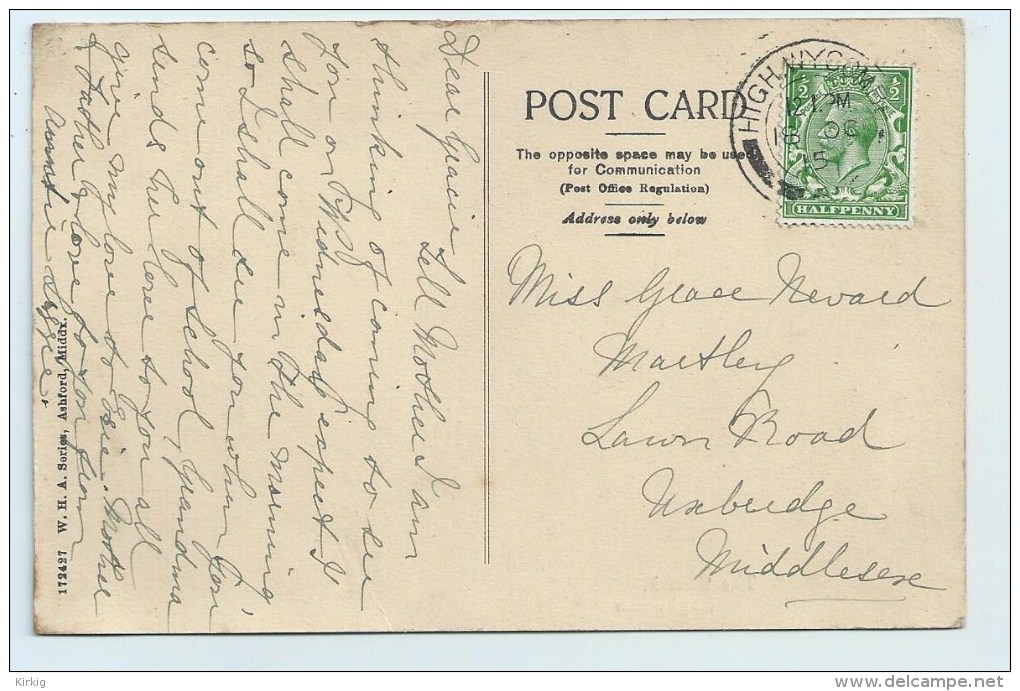 Dear Gracie Tell Mother I am
thinking of coming to see
you on Wednesday I expect I
shall come in the morning
so I shall see you when you
come out of School, Grandma
sends her love to you all
give my love to Evie. Mother
& Father & love to you from
Auntie Lizzie.
172427 W. H. A. Series, Ashford, Middx.
POST CARD
The opposite space may be used
for Communication
(Post Office Regulation)
Address only below
HIGH WYCOMBE
12 PM
18 OC
15
HALFPENNY
Miss Grace Nevard
Martley
Lawn Road
Uxbridge
Middlesex
Kirkig
www.delcampe.net